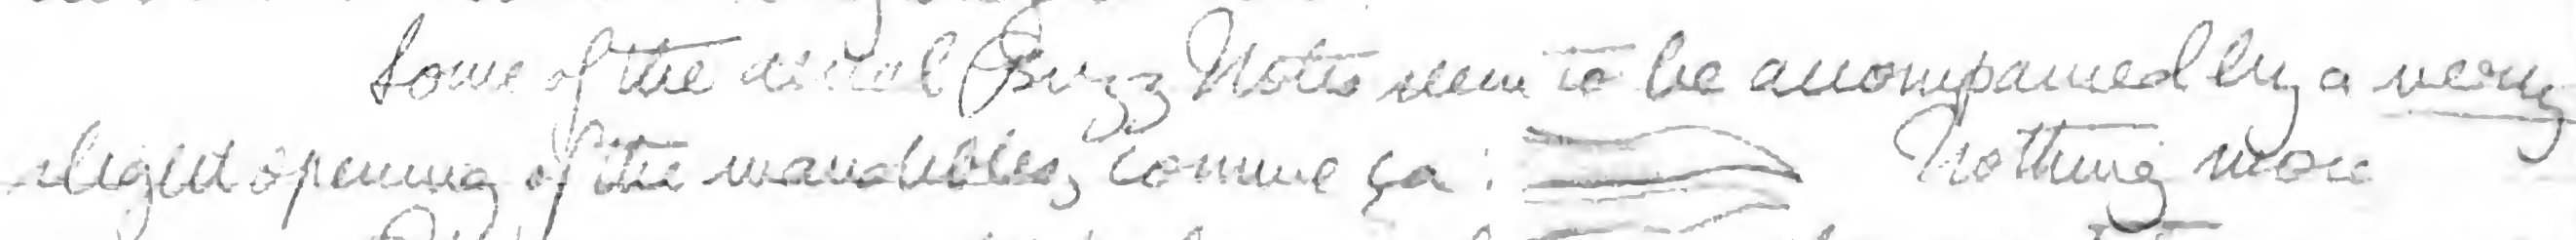 Some of the actual Buzz Notes seem to be accompanied by a very
slight opening of the mandibles, comme ça : Nothing more